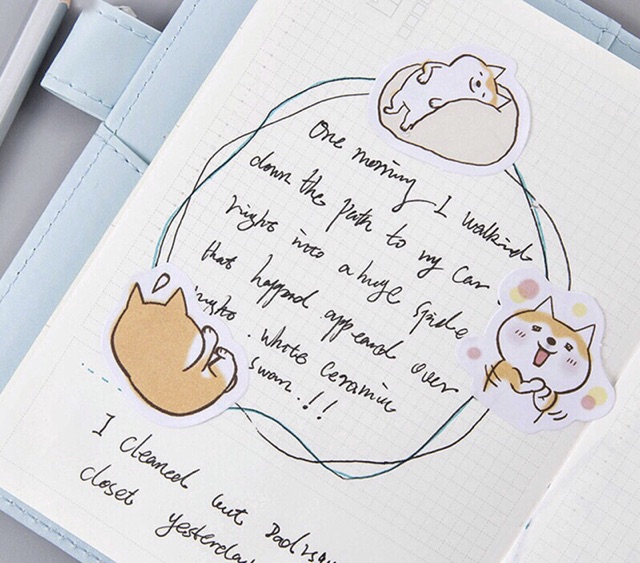 One morning I walkind
down the path to my car
right into a huge spide
that happnd appeard over
night. white ceramic
swan.!!
I cleaned out Dad's
closet yesterday